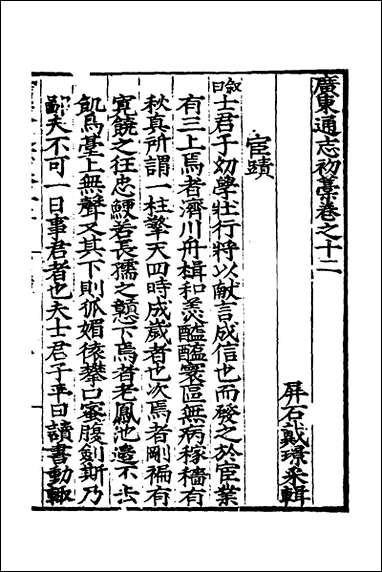 廣東通志初藁卷之十二
屏石戴璟采輯
宦蹟
叙曰士君子幼學壯行將以獻言成信也而發之於宦業
有三上焉者濟川舟楫和羹醯醢寰區無病稼穡有
秋真所謂一柱擎天四時成歲者也次焉者剛褊有
寬饒之狂忠鯁若長孺之戇下焉者老鳳池邊不去
飢烏臺上無聲又其下則狐媚猿攀口蜜腹劍斯乃
鄙夫不可一日事君者也夫士君子平日讀書動輒